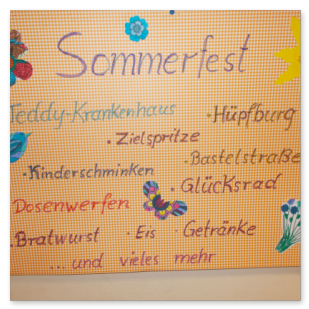 Sommerfest
Teddy-Krankenhaus
· Hüpfburg
· Zielspritze
· Bastelstraße
· Kinderschminken
· Glücksrad
Dosenwerfen
· Bratwurst · Eis · Getränke
... und vieles mehr